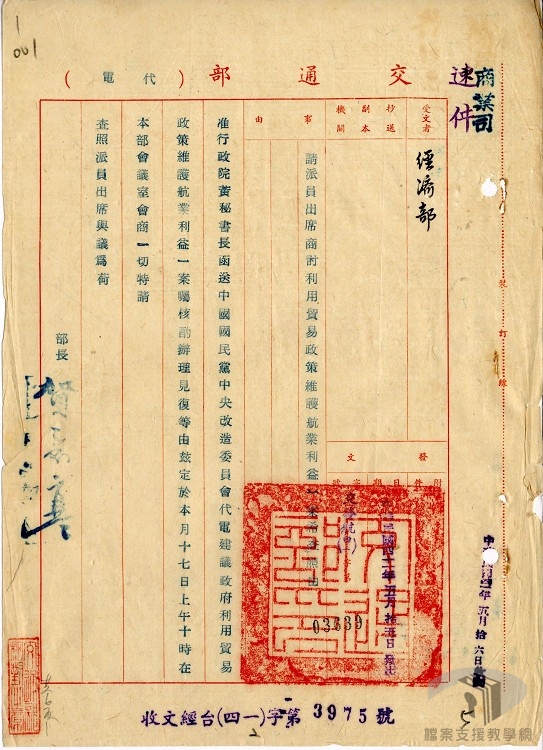 1
001
商業司
速件
交通部(代電)
受文者
經濟部
抄送
副本
機關
事由
請派員出席商討利用貿易政策維護航業利益一案
發文
附件
日期
字號
年五月
03639
准行政院黃秘書長函送中國國民黨中央改造委員會代電建議政府利用貿易
政策維護航業利益一案囑核酌辦理見復等由茲定於本月十七日上午十時在
本部會議室會商一切特請
查照派員出席與議爲荷
部長
裝訂線
五月拾六日
收文經台(四一)字第3975號
檔案支援教學網